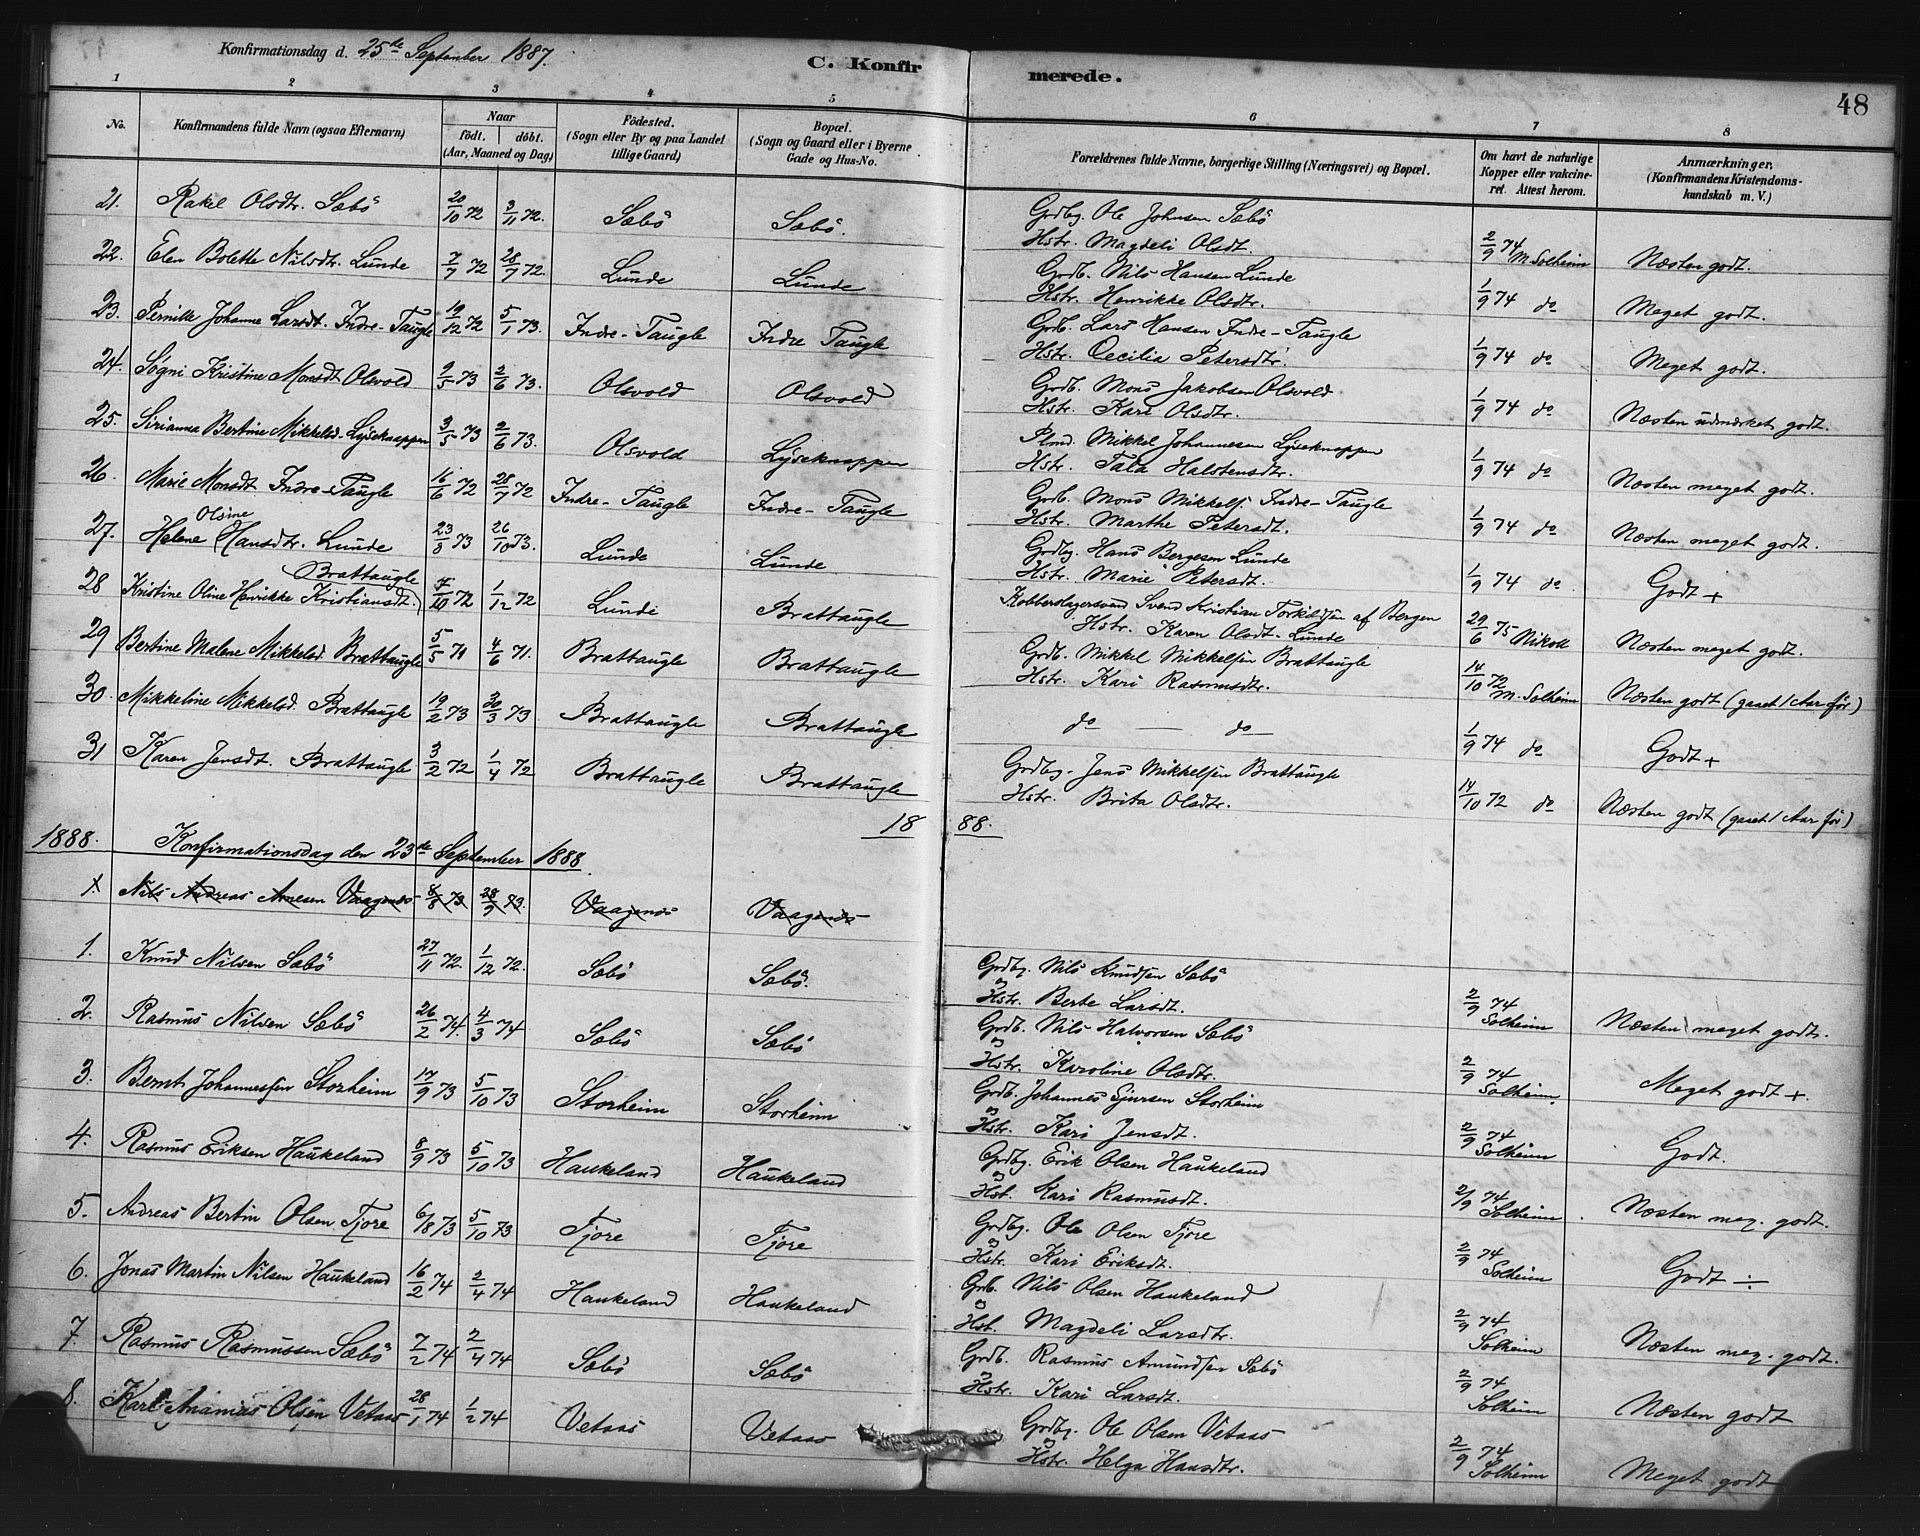 Konfirmationsdag d. 25de September 1887.
C. Konfirmerede.
48
1 2 3 4 5 6 7 8
No.
Konfirmandens fulde Navn (ogsaa Efternavn)
Naar
födt. döbt.
(Aar, Maaned og Dag)
Födested.
(Sogn eller By og paa Landet
tillige Gaard)
Bopæl.
(Sogn og Gaard eller i Byerne
Gade og Hus-No.
Forældrenes fulde Navne, borgerlige Stilling (Næringsvei) og Bopæl.
Om havt de naturlige
Kopper eller vakcine-
ret. Attest herom.
Anmærkninger.
(Konfirmandens Kristendoms-
kundskab m. V.)
21. Rakel Olsdtr. Sæbö 20/10 72 3/11 72. Sæbö Sæbö. Grdbg. Ole Johnsen Sæbö
Hstr. Magdeli Olsdt. 2/9 74 M. Solheim Næsten godt.
22. Elen Bolette Nilsdtr. Lunde 7/7 72 28/7 72. Lunde Lunde Grdb. Nils Hansen Lunde
Hstr. Henrikke Olsdtr. 1/9 74 do Meget godt.
23. Pernille Johanne Larsdt. Indre-Taugle 19/12 72 5/1 73. Indre-Taugle Indre Taugle Grdb. Lars Hansen Indre-Taugle
Hstr. Cecilia Petersdtr. 1/9 74 do Meget godt.
24. Søgni Kristine Monsdt Olsvold 9/5 73 2/6 73. Olsvold Olsvold Grdb. Mons Jakobsen Olsvold
Hstr. Kari Olsdtr. 1/9 74 do Næsten udmærket godt.
25. Sirianna Bertine Mikkelsd. Lyseknappen 3/5 73 2/6 73. Olsvold Lyseknappen Plmd. Mikkel Johannesen Lyseknappen
Hstr. Tala Halstensdtr. 1/9 74 do Næsten meget godt.
26. Marie Monsdt. Indre-Taugle 16/6 72 28/7 72 Indre-Taugle Indre-Taugle Grdb. Mons Mikkelsj. Indre-Taugle
Hstr. Marthe Petersdt. 1/9 74 do Næsten meget godt.
Olsine
27. Helene Hansdtr. Lunde 23/8 73 26/10 73. Lunde Lunde Grdbg. Hans Bergesen Lunde
Hstr. Marie Petersdt. 1/9 74 do Godt +
Brattaugle
28 Kristine Oline Henrikke Kristiansdt. 4/10 72 1/12 72 Lunde Brattaugle Kobberslagersvend Svend Kristian Torkildsen af Bergen
Hstr. Karen Olsdt. Lunde 29/6 75 Nikoll Næsten meget godt.
29 Bertine Malene Mikkelsd. Brattaugle 5/5 71 4/6 71. Brattaugle Brattaugle Grdb. Mikkel Mikkelsen Brattaugle
Hstr. Kari Rasmusdtr. 14/10 72 M. Solheim Næsten godt (gaaet 1 Aar før)
30. Mikkeline Mikkelsd. Brattaugle 19/2 73 30/3 73 Brattaugle Brattaugle do — do 1/9 74 do Godt +
31 Karen Jensdt. Brattaugle 3/2 72 1/4 72 Brattaugle Brattaugle Grdbg. Jens Mikkelsen Brattaugle
Hstr. Brita Olsdtr. 14/10 72 do Næsten godt (gaaet 1 Aar før)
18 88.
1888. Konfirmationsdag den 23de September 1888.
1 Nils Andreas Arnesen Vaagenes 8/8 73 28/9 73. Vaagenes Vaagenes
1. Knud Nilsen Sæbö 27/11 72. 1/12 72. Sæbö Sæbö. Grdbg. Nils Knudsen Sæbö
og
Hstr. Berte Larsdt. 2/9 74 Solheim Næsten meget godt.
2. Rasmus Nilsen Sæbö 26/2 74. 4/3 74 Sæbö Sæbö Grdb. Nils Halvorsen Sæbö
og
Hstr. Karoline Olsdtr. 2/9 74 Solheim. Meget godt +.
3. Bernt Johannesen Storheim 17/9 73 5/10 73 Storheim Storheim Grdb. Johannes Sjursen Storheim
og
Hstr. Kari Jensdt. 2/9 74 Solheim Godt.
4. Rasmus Eriksen Haukeland 8/9 73 5/10 73 Haukeland Haukeland Grdbg. Erik Olsen Haukeland
og
Hst. Kari Rasmusdt. 2/9 74 Solheim. Næsten meg. godt.
5. Andreas Bertin Olsen Tjore 6/8 73 5/10 73 Tjore Tjore Grdbg. Ole Olsen Tjore
og
Hstr. Kari Eriksdt. 2/9 74 Solheim Godt ÷
6. Jonas Martin Nilsen Haukeland 16/2 74 2/4 74 Haukeland Haukeland Grb. Nils Olsen Haukeland
og
Hst. Magdeli Larsdtr. 2/9 74 Solheim Næsten meg. godt.
7. Rasmus Rasmussen Sæbö 7/2 74 2/4 74 Sæbö Sæbö Grdb. Rasmus Amundsen Sæbö
og
Hstr. Kari Larsdt. 2/9 74 Solheim Næsten godt
8. Karl Ananias Olsen Vetaas 28/1 74 1/2 74 Vetaas Vetaas Grdbg. Ole Olsen Vetaas
og
Hstr. Helga Hansdtr. 2/9 74 Solheim Meget godt